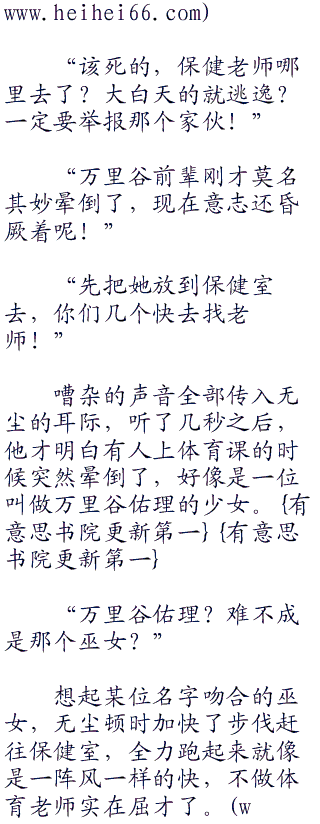 www.heihei66.com)
“该死的，保健老师哪
里去了？大白天的就逃逸？
一定要举报那个家伙！”
“万里谷前辈刚才莫名
其妙晕倒了，现在意志还昏
厥着呢！”
“先把她放到保健室
去，你们几个快去找老
师！”
嘈杂的声音全部传入无
尘的耳际，听了几秒之后，
他才明白有人上体育课的时
候突然晕倒了，好像是一位
叫做万里谷佑理的少女。{有
意思书院更新第一}{有意思
书院更新第一}
“万里谷佑理？难不成
是那个巫女？”
想起某位名字吻合的巫
女，无尘顿时加快了步伐赶
往保健室，全力跑起来就像
是一阵风一样的快，不做体
育老师实在屈才了。(w